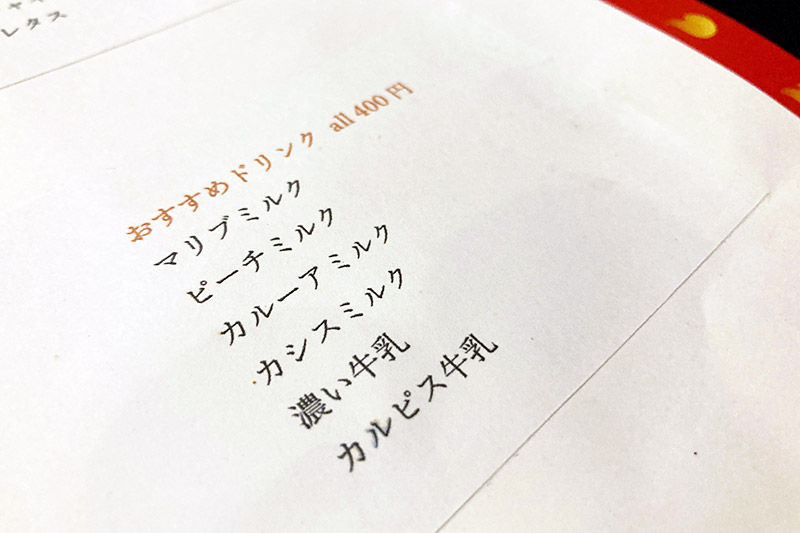 レタス
おすすめドリンク all 400 円
マリブミルク
ピーチミルク
カルーアミルク
カシスミルク
濃い牛乳
カルピス牛乳